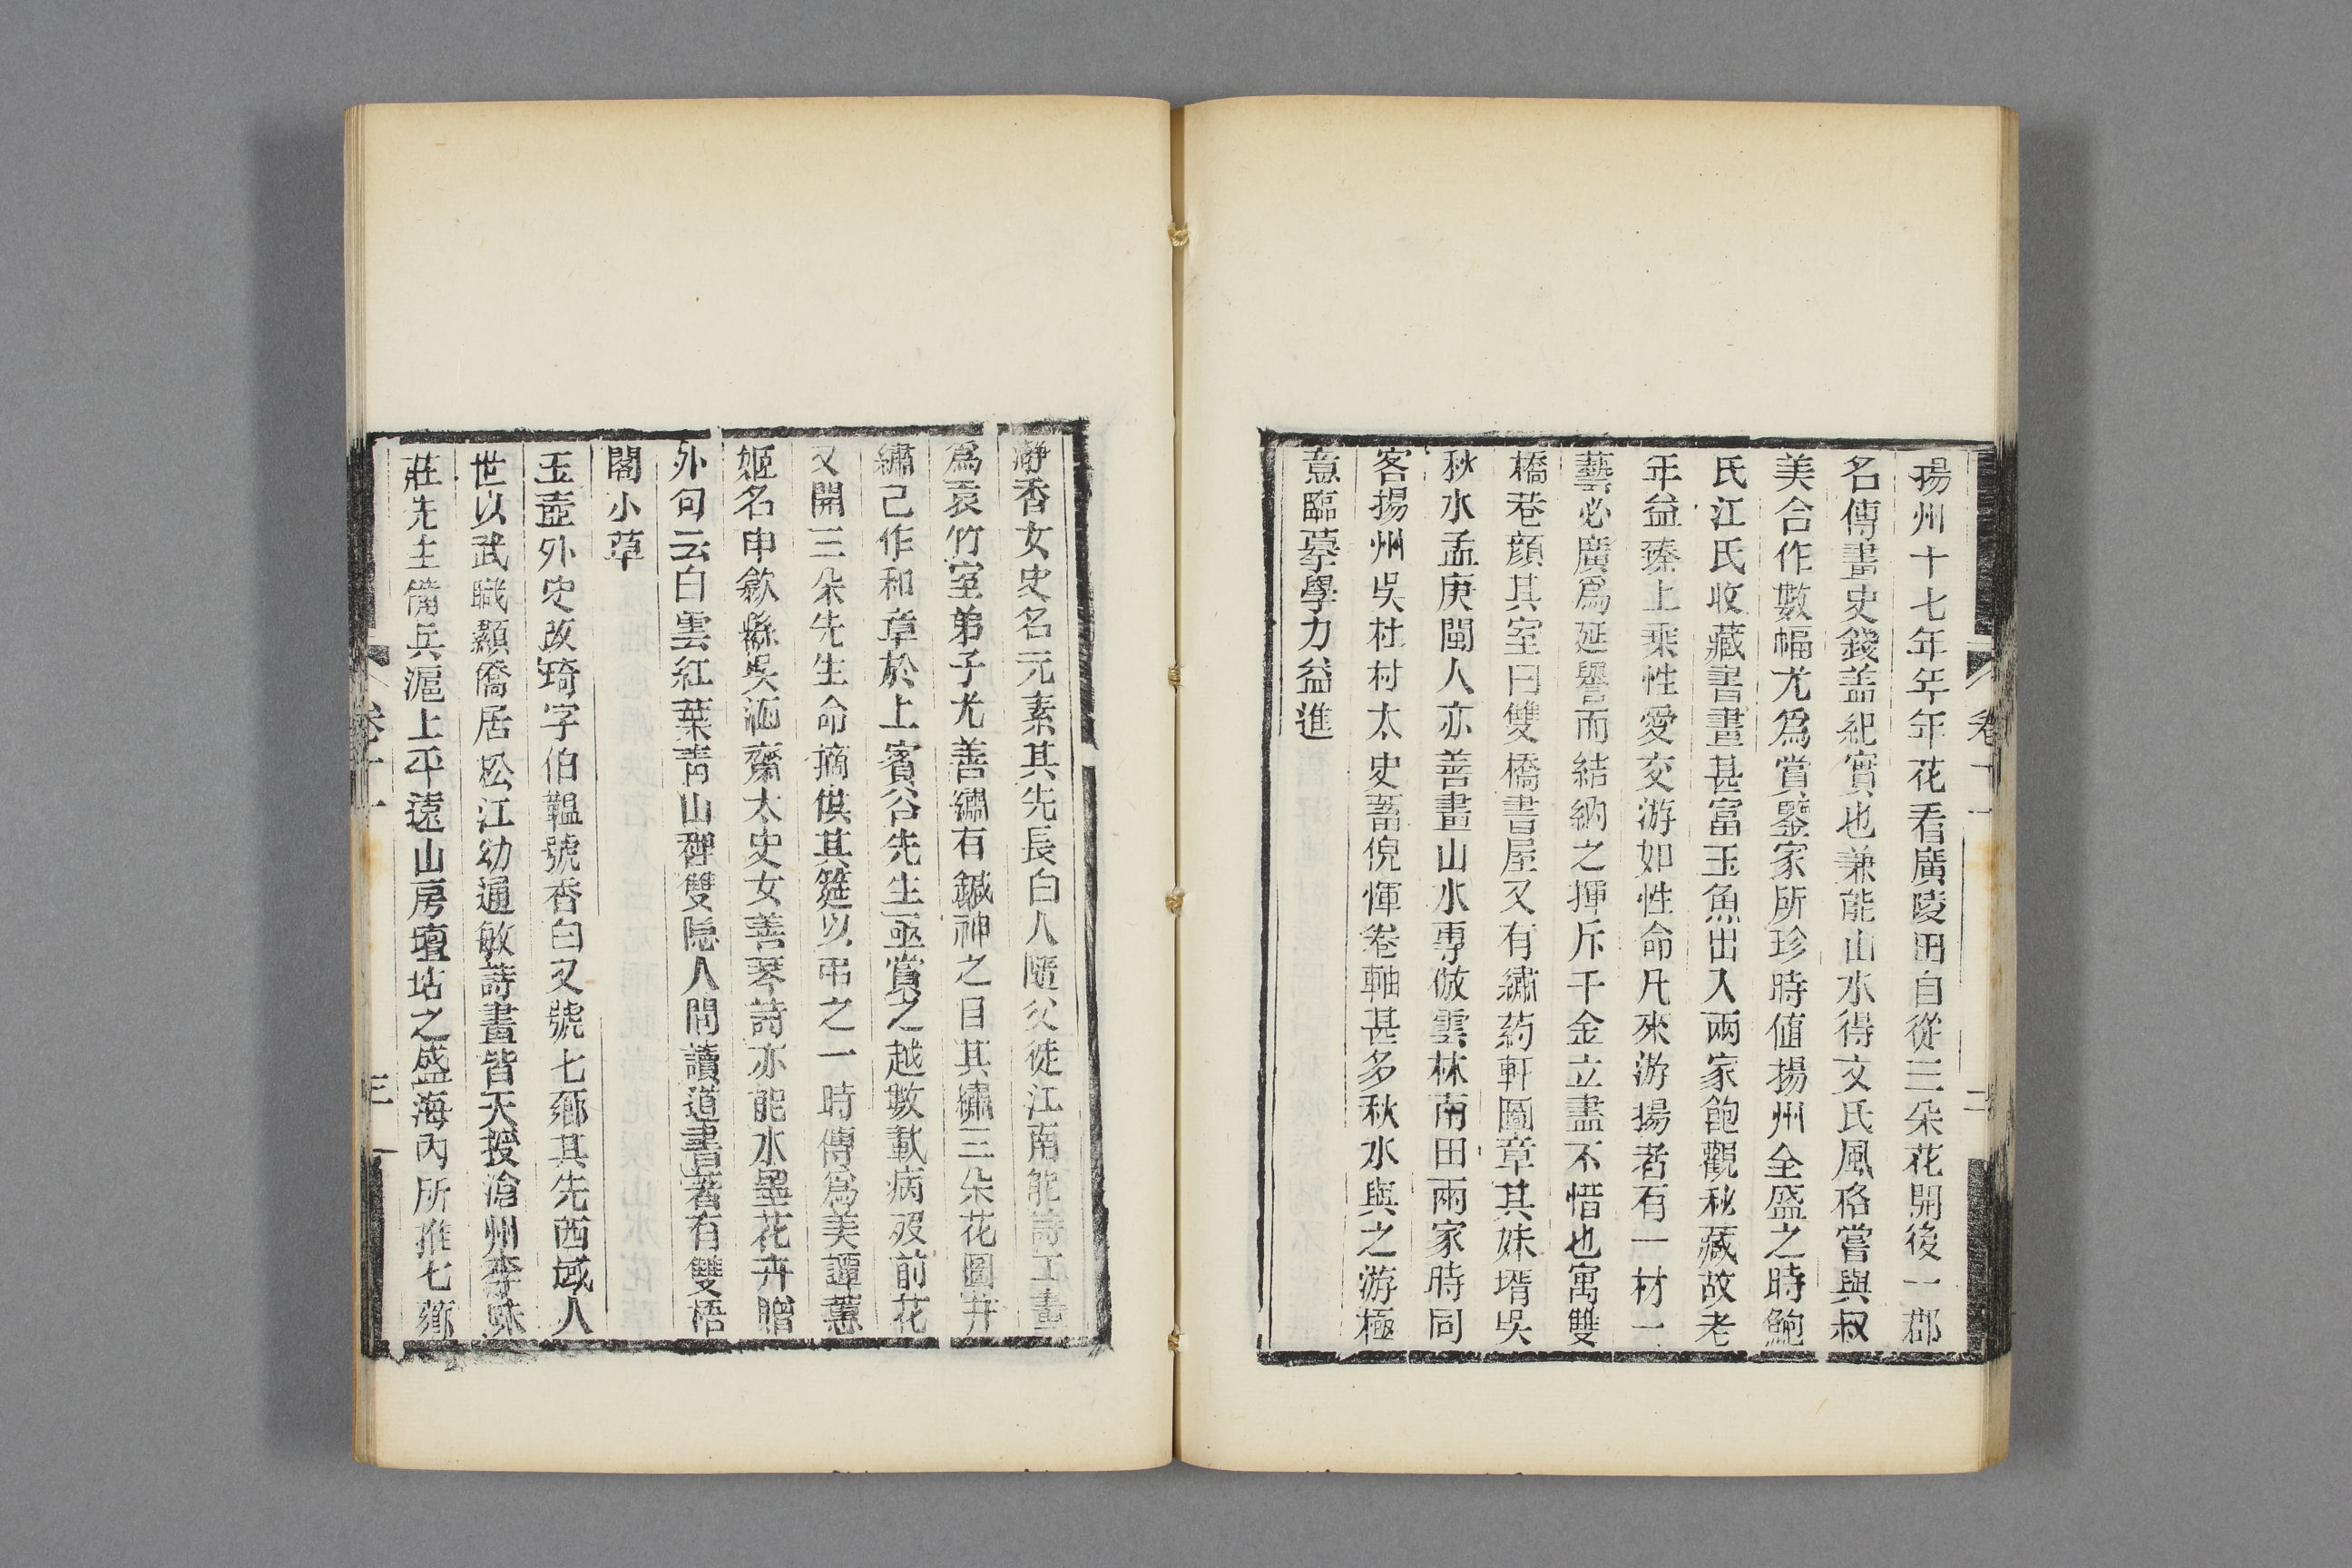 揚州十七年年年花看廣陵田自從三朶花開後一郡
名傳畫史錢盖紀實也兼能山水得文氏風格嘗與叔
美合作數幅尤爲賞鑒家所珍時値揚州全盛之時鮑
氏江氏收藏書畫甚富玉魚出入兩家飽觀秋藏故老
年益臻上乘性愛交游如性命凡來游揚者有一材一
藝必廣爲延譽而結納之揮斥千金立盡不惜也寓雙
橋巷顔其室曰雙橋書屋又有繡葯軒圖章其妹壻吳
秋水孟庚閩人亦善畫山水專倣雲林南田兩家時同
客揚州吳杜村太史蓄倪惲卷軸甚多秋水與之游極
意臨摹學力益進
卷十一
二
瀞香女史名元素其先長白人隨父徒江南能詩工畫
爲袁竹室弟子尤善繡有鍼神之目其繡三朵花圖并
繡己作和章於上賓谷先生亟賞之越數載病歿前花
又開三朵先生命摘供其筵以弔之一時傳爲美譚蕙
姬名申歙縣吳洍齋太史女善琴詩亦能水墨花卉贈
外句云白雲紅葉靑山裡雙隱人間讀道書著有雙梧
閣小草
玉壼外史改琦字伯韞號香白又號七薌其先西域人
世以武職顯僑居松江幼通敏詩畫皆天授滄州李味
莊先生備兵滬上平遠山房壇坫之盛海內所推七薌
卷十一
三